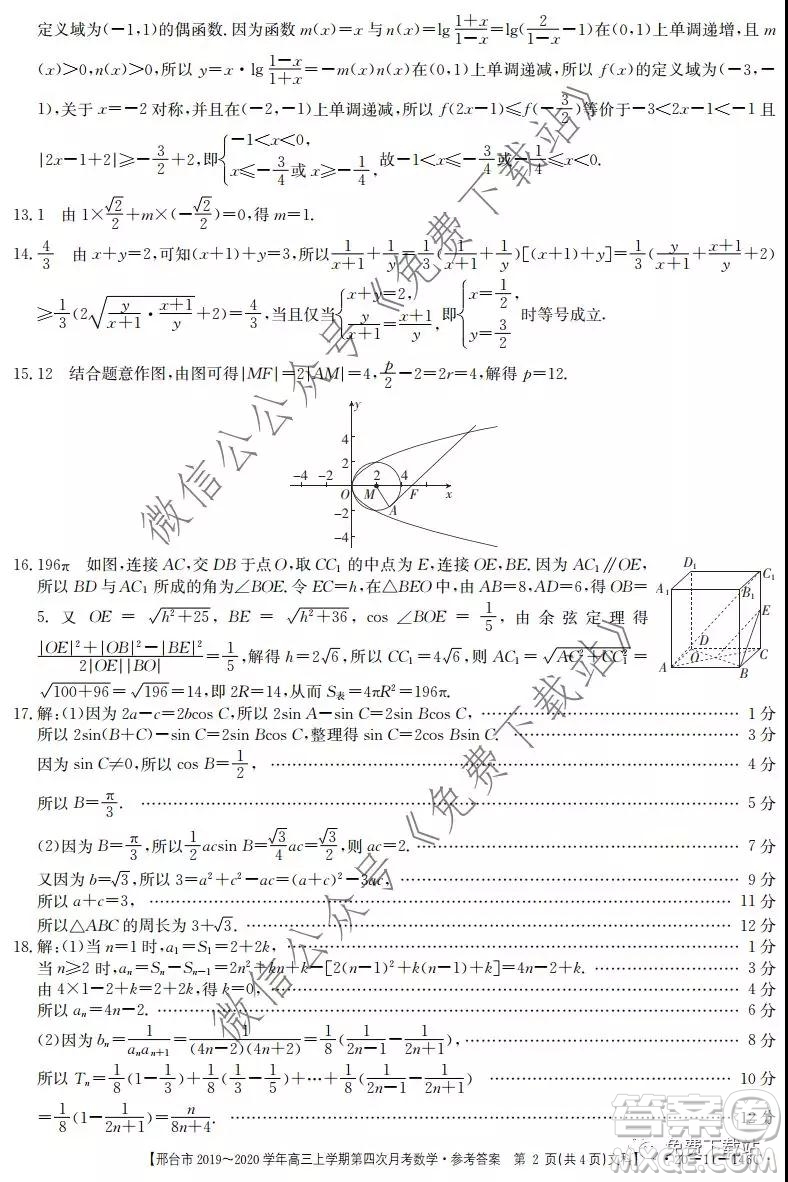 定义域为(-1,1)的偶函数.因为函数 m(x)=x 与 n(x)=lg (1+x)/(1-x)=lg(2/(1-x)-1)在(0,1)上单调递增,且 m
(x)>0,n(x)>0,所以 y=x·lg (1-x)/(1+x)=-m(x)n(x)在(0,1)上单调递减,所以 f(x)的定义域为(-3,-
1),关于 x=-2 对称,并且在(-2,-1)上单调递减,所以 f(2x-1)≤f(-3/2)等价于-3<2x-1<-1 且
|2x-1+2|≥-3/2+2,即{-1<x<0, x≤-3/4或 x≥-1/4, 故-1<x≤-3/4或-1/4≤x<0.
13.1 由 1×√2/2+m×(-√2/2)=0,得 m=1.
14.4/3 由 x+y=2,可知(x+1)+y=3,所以1/(x+1)+1/y=1/3(1/(x+1)+1/y)[(x+1)+y]=1/3(y/(x+1)+(x+1)/y+2)
≥1/3(2√(y/(x+1)·(x+1)/y)+2)=4/3,当且仅当{x+y=2, y/(x+1)=(x+1)/y, 即{x=1/2, y=3/2 时等号成立.
15.12 结合题意作图,由图可得|MF|=2|AM|=4,p/2-2=2r=4,解得 p=12.
y
4
2
-4 -2 2 4
O M F x
A
-2
-4
16.196π 如图,连接 AC,交 DB 于点 O,取 CC₁ 的中点为 E,连接 OE,BE.因为 AC₁∥OE,
所以 BD 与 AC₁ 所成的角为∠BOE.令 EC=h,在△BEO 中,由 AB=8,AD=6,得 OB=
5. 又 OE = √(h²+25), BE = √(h²+36), cos ∠BOE = 1/5, 由余弦定理得
(|OE|²+|OB|²-|BE|²)/(2|OE||BO|)=1/5,解得 h=2√6,所以 CC₁=4√6,则 AC₁=√(AC²+CC₁²)=
√(100+96)=√196=14,即 2R=14,从而 S表=4πR²=196π.
D₁
C₁
A₁
B₁
E
D
O
C
A
B
17.解:(1)因为 2a-c=2bcos C,所以 2sin A-sin C=2sin Bcos C, …… 1 分
所以 2sin(B+C)-sin C=2sin Bcos C,整理得 sin C=2cos Bsin C. …… 3 分
因为 sin C≠0,所以 cos B=1/2, …… 4 分
所以 B=π/3. …… 5 分
(2)因为 B=π/3,所以1/2acsin B=√3/4ac=√3/2,则 ac=2. …… 7 分
又因为 b=√3,所以 3=a²+c²-ac=(a+c)²-3ac, …… 9 分
所以 a+c=3, …… 11 分
所以△ABC 的周长为 3+√3. …… 12 分
18.解:(1)当 n=1 时,a₁=S₁=2+2k, …… 1 分
当 n≥2 时,aₙ=Sₙ-Sₙ₋₁=2n²+kn+k-[2(n-1)²+k(n-1)+k]=4n-2+k. …… 3 分
由 4×1-2+k=2+2k,得 k=0, …… 4 分
所以 aₙ=4n-2. …… 6 分
(2)因为 bₙ=1/(aₙaₙ₊₁)=1/((4n-2)(4n+2))=1/8(1/(2n-1)-1/(2n+1)), …… 8 分
所以 Tₙ=1/8(1-1/3)+1/8(1/3-1/5)+…+1/8(1/(2n-1)-1/(2n+1)) …… 10 分
=1/8(1-1/(2n+1))=n/(8n+4). …… 12 分
【邢台市 2019～2020 学年高三上学期第四次月考数学·参考答案 第 2 页(共 4 页)文科】
微信公众号《免费下载站》
微信公众号《免费下载站》
答案圈
免费下载站